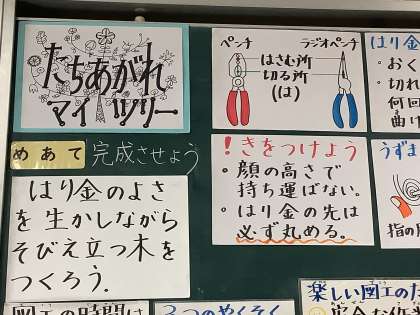 たちあがれ
マイ ツリー
めあて
完成させよう
はり金のよさ
を生かしながら
そびえ立つ木を
つくろう.
ペンチ
ラジオペンチ
はさむ所
切る所
(は)
！きをつけよう
・顔の高さで
持ち運ばない。
・はり金の先は
必ず丸める。
はり金
・おく
・切れ
何回
曲け
うずま
指の
図工の時間は
3つのやくそく
楽しい図工のた